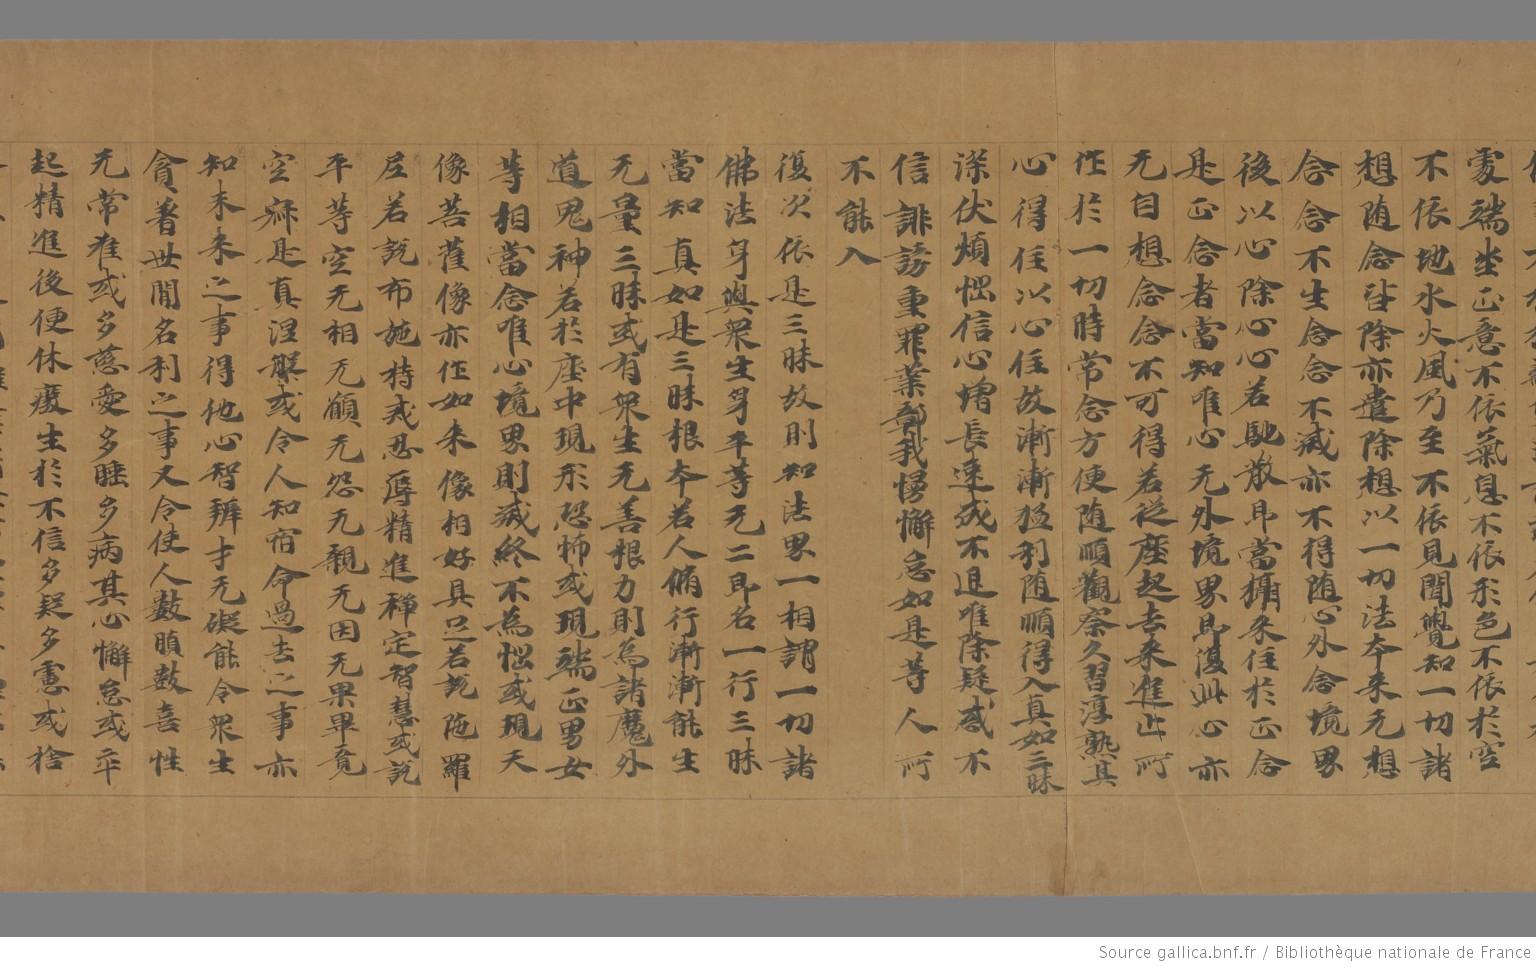 處端坐正意不依氣息不依形色不依於空
不依地水火風乃至不依見聞覺知一切諸
想随念皆除亦遣除想以一切法夲来无想
念念不生念念不滅亦不得随心外念境界
後以心除心心若馳散即當攝来住於正念
是正念者當知唯心无外境界即復此心亦
无自想念念不可得若従座起去来進止所
作於一切時常念方便随順觀察久習淳熟其
心得住以心住故漸漸猛利随順得入真如三昧
深伏煩惱信心增長速成不退唯除疑惑不
信誹謗重罪業鄣我慢懈怠如是等人所
不能入
復次依是三昧故則知法界一相謂一切諸
佛法身與衆生身平等无二即名一行三昧
當知真如是三昧根夲若人脩行漸漸能生
无量三昧或有衆生无善根力則為諸魔外
道鬼神若於座中現形恐怖或現端正男女
等相當念唯心境界則滅終不為惱或現天
像菩薩像亦作如来像相好具足若說陁羅
尼若說布施持戒忍辱精進禪定智慧或說
平等空无相无願无怨无親无因无果畢竟
空寂是真涅槃或令人知宿命過去之事亦
知未来之事得他心智辯才无礙能令衆生
貪著世閒名利之事又令使人數瞋數喜性
无常准或多慈愛多睡多病其心懈怠或卒
起精進後便休癈生於不信多疑多慮或捨
Source gallica.bnf.fr / Bibliothèque nationale de France